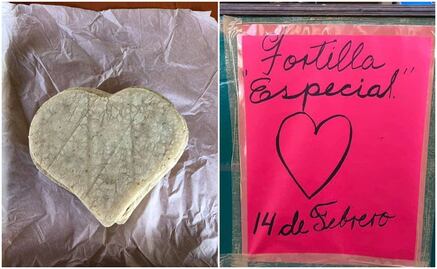 Tortilla
"Especial"
14 de Febrero